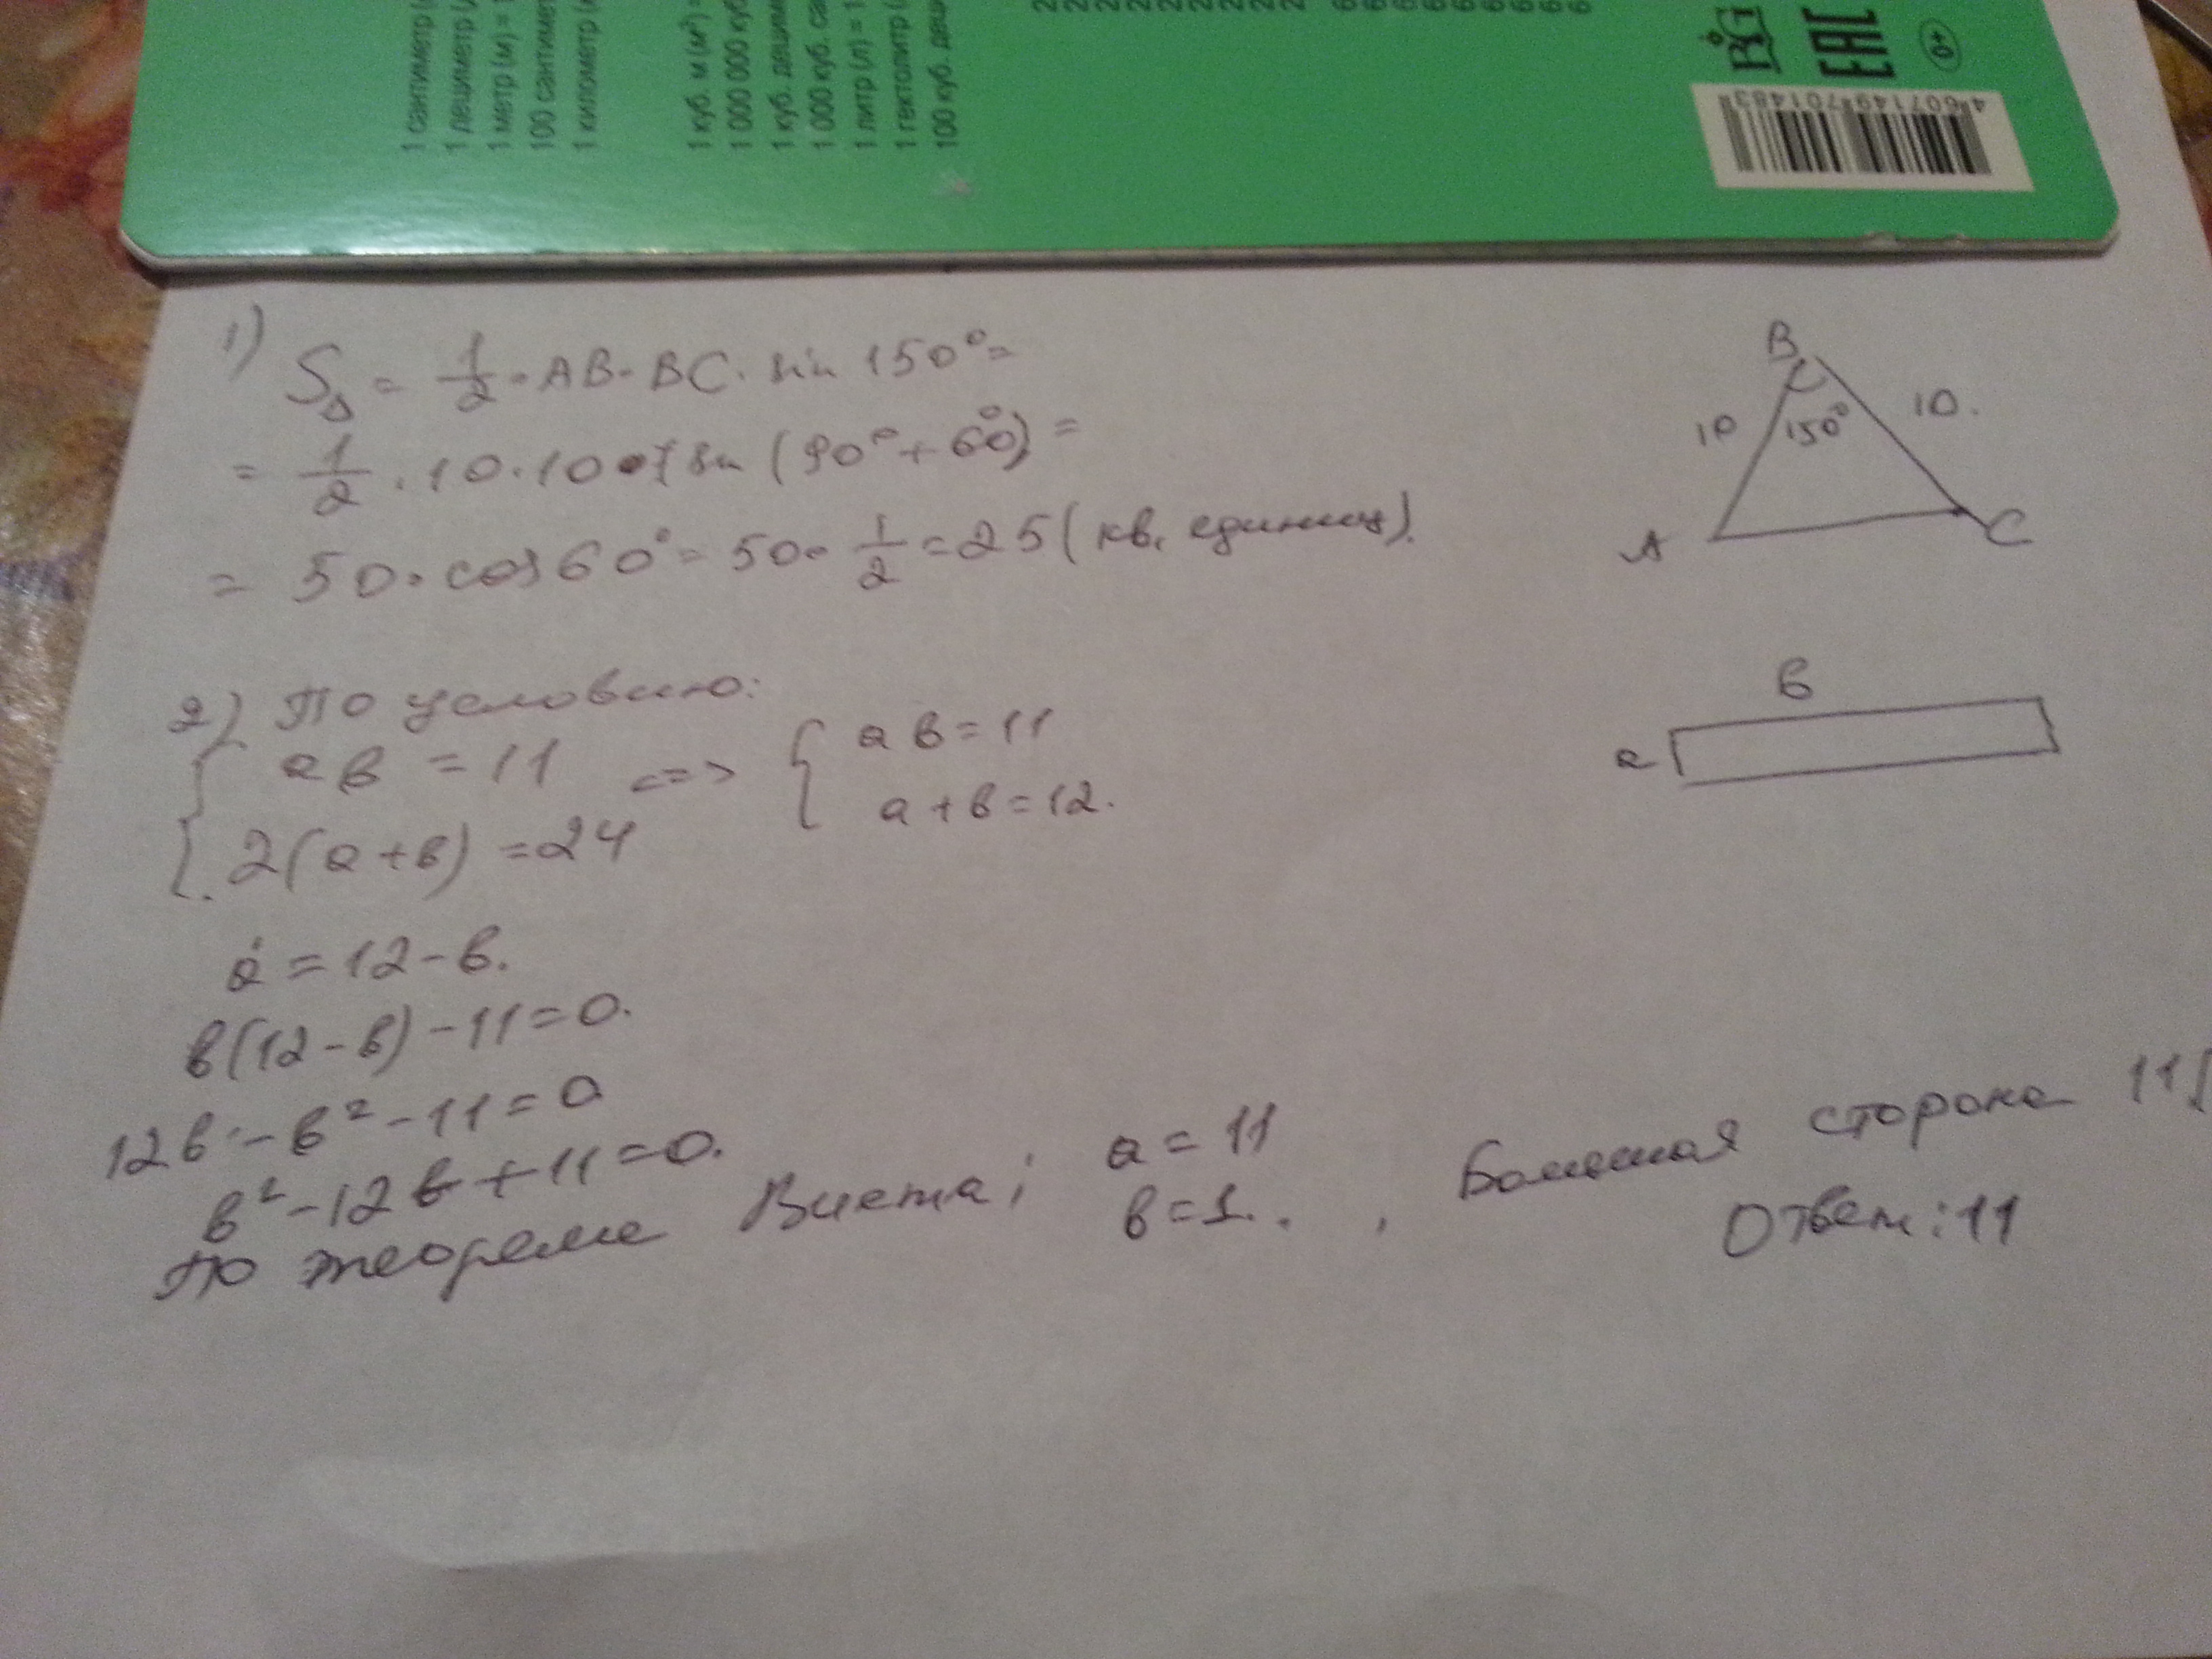 1 сантиметр
1 дециметр
1 метр (м) = 1
100 сантимет
1 километр
1 куб. м (м³) =
1 000 000 куб
1 куб. дециме
1 000 куб. са
1 литр (л) = 1
1 гектолитр
100 куб. деци
EAC
0+
4 607149 701483
1)
S△ = 1/2 · AB · BC · sin 150° =
= 1/2 · 10 · 10 · sin (90° + 60°) =
= 50 · cos 60° = 50 · 1/2 = 25 (кв. единиц).
B
10
150°
10.
A
C
2) По условию:
{ ав = 11 <=> { ав = 11
{ 2(а+в) = 24 а + в = 12.
в
а
а = 12 - в.
в(12 - в) - 11 = 0.
12в - в² - 11 = 0
в² - 12в + 11 = 0.
По теореме Виета; а = 11
в = 1. , Большая сторона 11
Ответ: 11